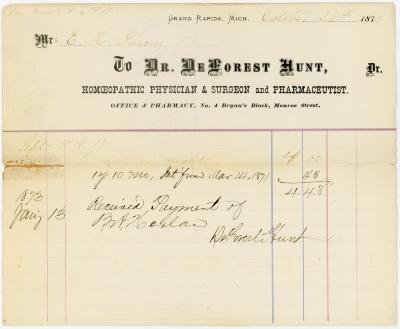 Grand Rapids, Mich. October 187
Mrs E. H. Turner
To Dr. DeForest Hunt, Dr.
HOMŒOPATHIC PHYSICIAN & SURGEON and PHARMACEUTIST.
OFFICE & PHARMACY, No. 4 Bryan's Block, Monroe Street.
Sept
night 4 00
1 y 10 mo, Int from Mar 14, 1871 48
4 48
1873
Jany 13 Received Payment of
DeForest Hunt